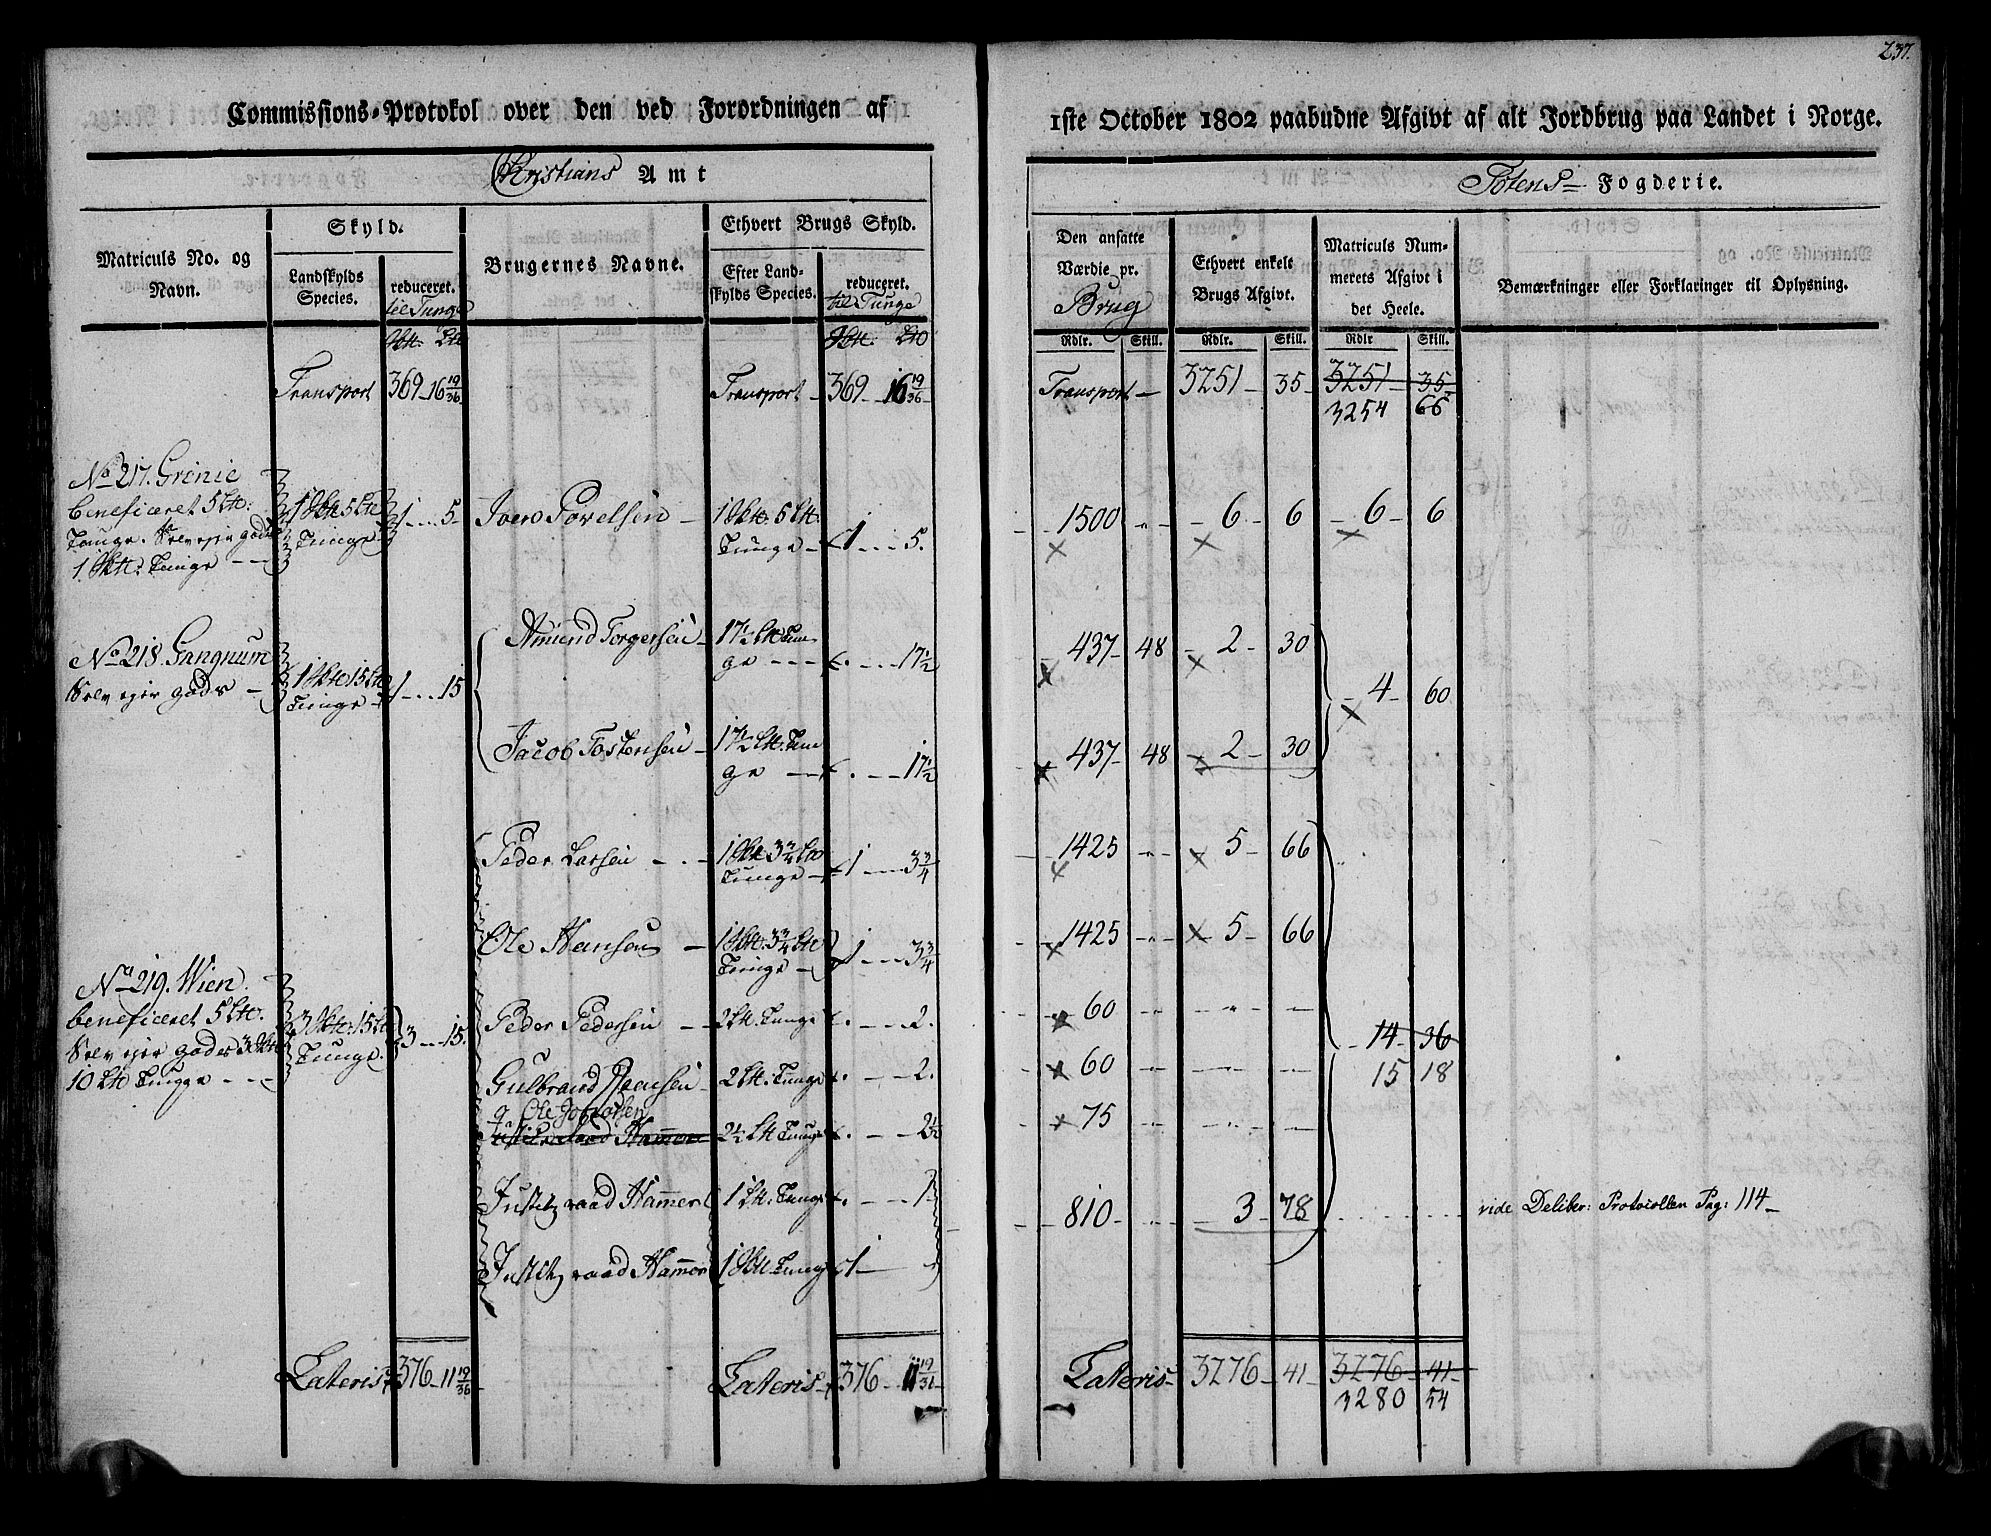 237.
Commissions-Protokol over den ved Forordningen af 1ste October 1802 paabudne Afgivt af alt Jordbrug paa Landet i Norge.
Christians Amt
Totens Fogderie.
Matriculs No. og Navn.
Skyld.
Landskylds Species.
reduceret. til Tunge
Brugernes Navne.
Ethvert Brugs Skyld.
Efter Landskylds Species.
reduceret. til Tunge
Den ansatte Værdie pr. Brug
Ethvert enkelt Brugs Afgivt.
Matriculs Nummerets Afgivt i det Heele.
Bemærkninger eller Forklaringer til Oplysning.
Rdlr. Skill. Rdlr. Skill. Rdlr Skill.
Transport 369 16 19/36 Transport 369 16 19/36 Transport 3251 35 3251 35
3254 66
No 217. Grönie
beneficeret 5 Ltt:
Tunge. Selv ejer gods
1 Skt: Tunge
1 Skt 5 Lt
Tunge
1 5
Iver Povelsen
1 Skt. 5 Ltt.
Tunge
1 5.
1500 6 6 6 6
No 218. Gangnum
Selv ejer gods
1 Skt 15 Lt
Tunge
1 15
Amund Torgersen
17½ Ltt Tunge
17½
437 48 2 30
4 60
Jacob Tostensen
17½ Ltt. Tunge
17½
437 48 2 30
Peder Larsen
1 Skt 3¾ Lt
Tunge
1 3¾
1425 5 66
Ole Hansen
1 Skt. 3¾ Ltt
Tunge
1 3¾
1425 5 66
No 219. Wien
beneficeret 5 Ltt.
Selv ejer gods 3 Skt
10 Ltt Tunge
3 Skt: 15 Lt
Tunge.
3 15.
Peder Pedersen 2 Ltt. Tunge 2. 60
14 36
15 18
Gulbrand 2 Ltt. Tunge 2. 60
Ole
Hammer 2½ Ltt Tunge 2½ 75
Justitz raad Hammer 1 Ltt. Tunge 1 810 3 78 vide Deliber: Protocollen Pag: 114
Justitz raad Hammer 1 Skt. Tunge 1
Lateris 376 11 19/36 Lateris 376 11 19/36 Lateris 3276 41 3276 41
3280 54